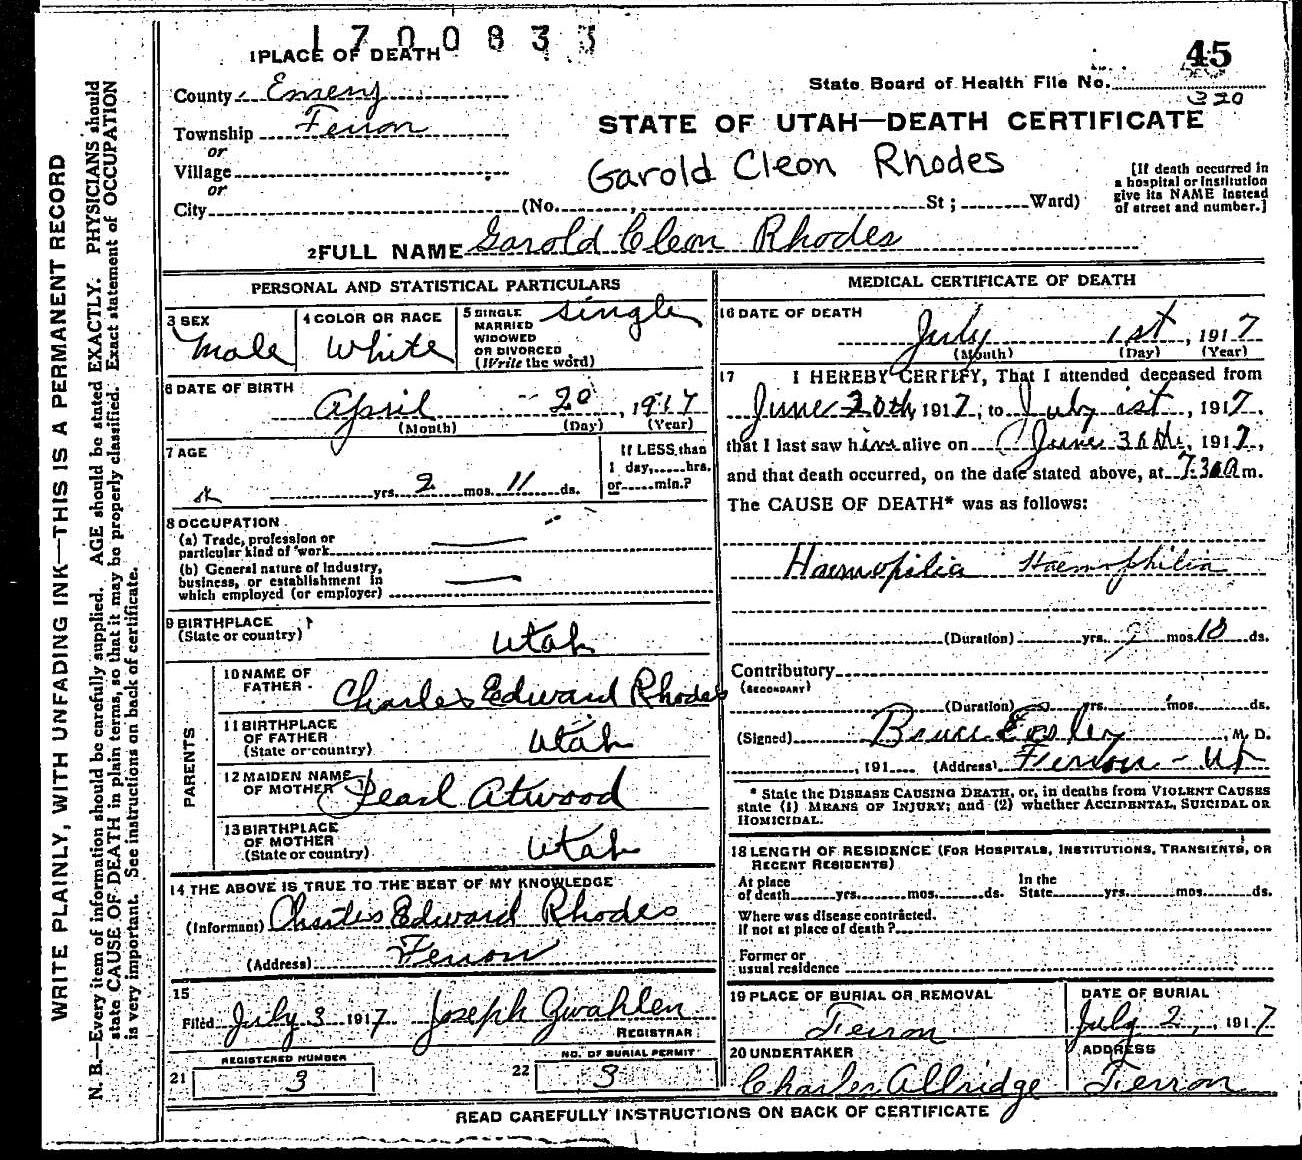 1700833
45
1 PLACE OF DEATH
State Board of Health File No.
320
County Emery
Township Ferron
STATE OF UTAH—DEATH CERTIFICATE
or
Village
Garold Cleon Rhodes
[If death occurred in a hospital or institution give its NAME instead of street and number.]
or
City (No. St; Ward)
2 FULL NAME Garold Cleon Rhodes
PERSONAL AND STATISTICAL PARTICULARS
3 SEX
Male
4 COLOR OR RACE
White
5 SINGLE
MARRIED
WIDOWED
OR DIVORCED
(Write the word)
Single
6 DATE OF BIRTH
April 20, 1917
(Month) (Day) (Year)
7 AGE
yrs. 2 mos. 11 ds.
If LESS than
1 day, hrs.
or min.?
8 OCCUPATION
(a) Trade, profession or
particular kind of work
(b) General nature of industry,
business, or establishment in
which employed (or employer)
9 BIRTHPLACE
(State or country)
Utah
PARENTS
10 NAME OF
FATHER
Charles Edward Rhodes
11 BIRTHPLACE
OF FATHER
(State or country)
Utah
12 MAIDEN NAME
OF MOTHER
Pearl Atwood
13 BIRTHPLACE
OF MOTHER
(State or country)
Utah
14 THE ABOVE IS TRUE TO THE BEST OF MY KNOWLEDGE
(Informant) Charles Edward Rhodes
(Address) Ferron
15
Filed July 3 1917 Joseph Zwahlen
REGISTRAR
REGISTERED NUMBER
21 3
NO. OF BURIAL PERMIT
22 3
MEDICAL CERTIFICATE OF DEATH
16 DATE OF DEATH
July 1st, 1917
(Month) (Day) (Year)
17 I HEREBY CERTIFY, That I attended deceased from
June 20th, 1917, to July 1st, 1917,
that I last saw him alive on June 30th, 1917,
and that death occurred, on the date stated above, at 7:30 a m.
The CAUSE OF DEATH* was as follows:
Haemopilia Haemophilia
(Duration) yrs. mos. 10 ds.
Contributory
(SECONDARY)
(Duration) yrs. mos. ds.
(Signed) Bruce Easley, M. D.
, 191 (Address) Ferron - Ut
* State the DISEASE CAUSING DEATH, or, in deaths from VIOLENT CAUSES
state (1) MEANS OF INJURY; and (2) whether ACCIDENTAL, SUICIDAL OR
HOMICIDAL.
18 LENGTH OF RESIDENCE (FOR HOSPITALS, INSTITUTIONS, TRANSIENTS, OR
RECENT RESIDENTS)
At place
of death yrs. mos. ds.
In the
State yrs. mos. ds.
Where was disease contracted,
if not at place of death?
Former or
usual residence
19 PLACE OF BURIAL OR REMOVAL
Ferron
DATE OF BURIAL
July 2, 1917
20 UNDERTAKER
Charles Allridge
ADDRESS
Ferron
READ CAREFULLY INSTRUCTIONS ON BACK OF CERTIFICATE
WRITE PLAINLY, WITH UNFADING INK—THIS IS A PERMANENT RECORD
N. B.—Every item of information should be carefully supplied. AGE should be stated EXACTLY. PHYSICIANS should
state CAUSE OF DEATH in plain terms, so that it may be properly classified. Exact statement of OCCUPATION
is very important. See instructions on back of certificate.